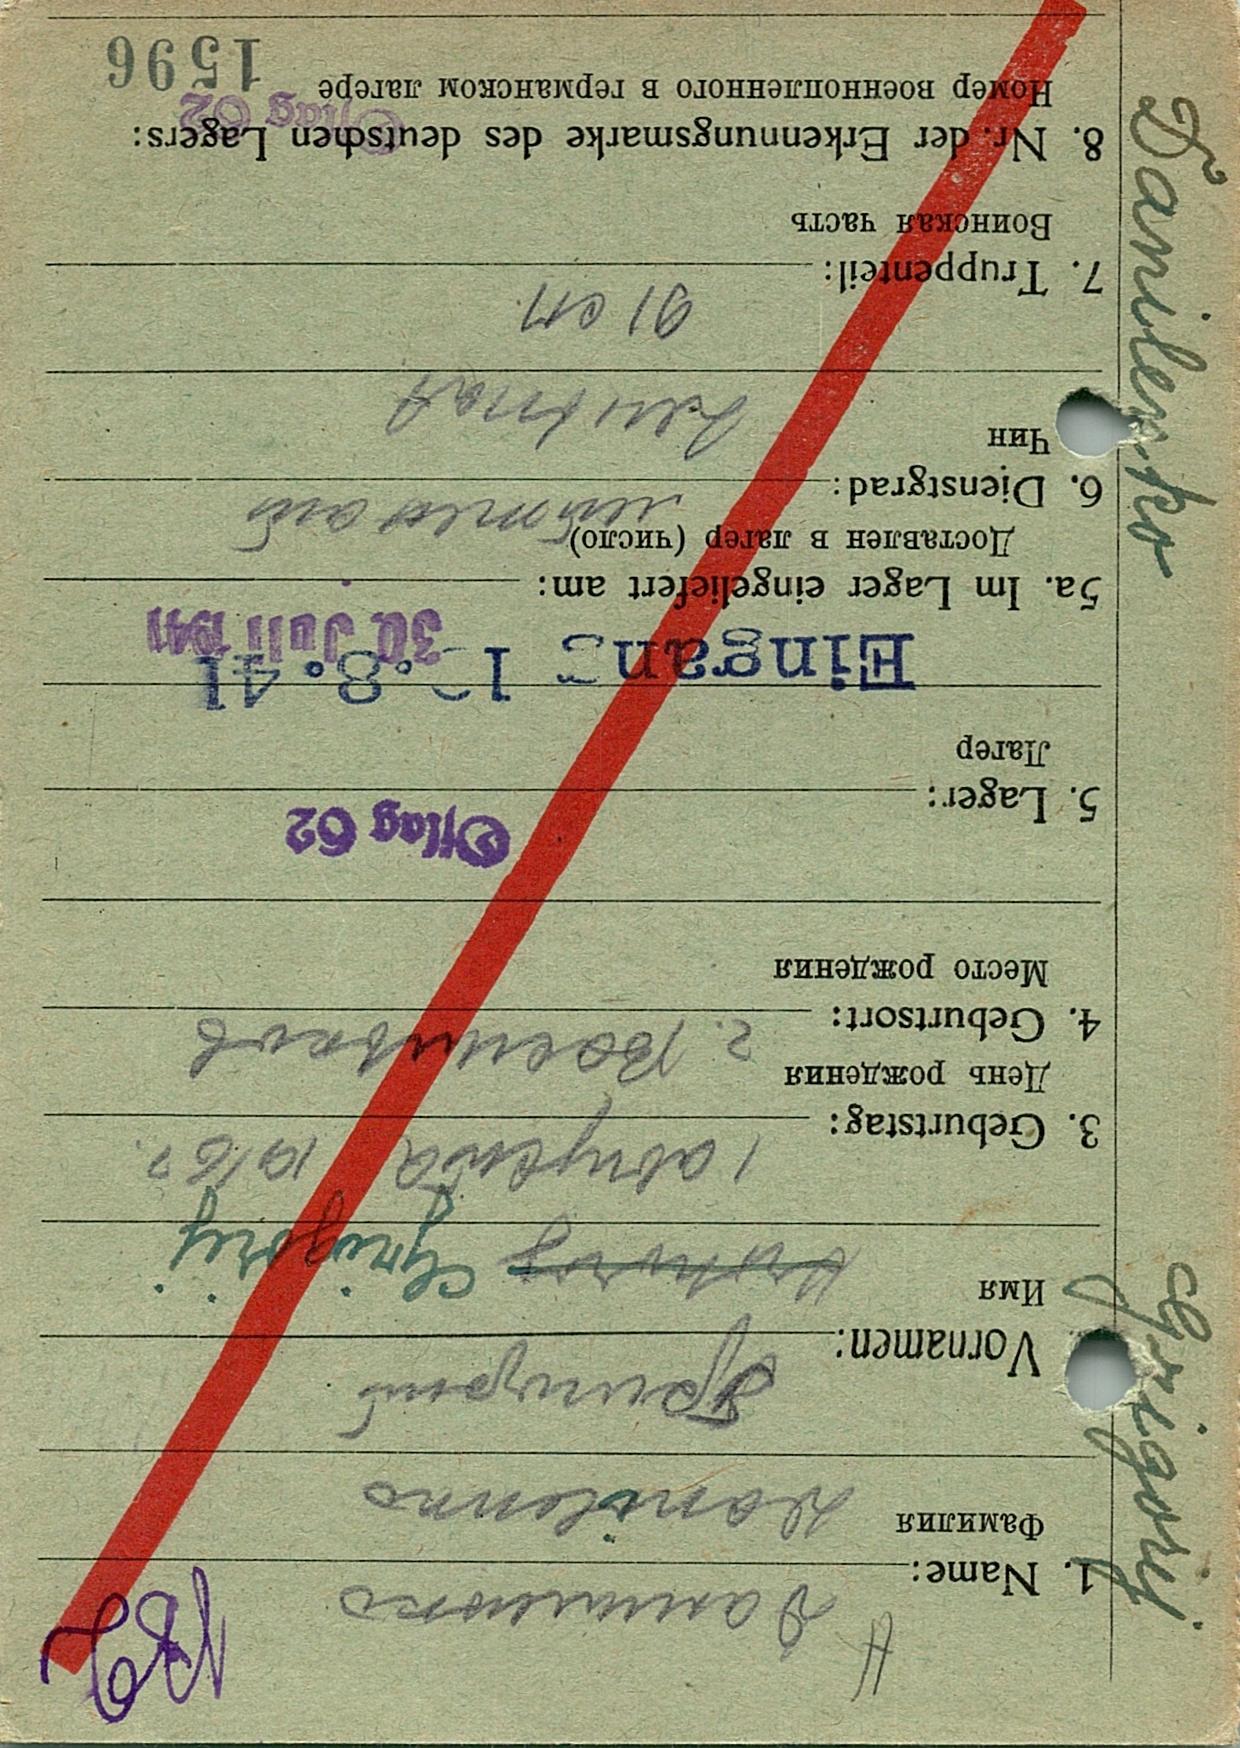 Danilenko Grigorij
H
1. Name: Даниленко
Фамилия
Danilenko
Григорий
Vornamen:
Имя
Grigorij
3. Geburtstag: 1 августа 1916 г.
День рождения
4. Geburtsort: г.
Место рождения
Oflag 62
5. Lager:
Лагер
Eingang 1 .8.41
30. Juli 1941
5a. Im Lager eingeliefert am:
Доставлен в лагер (число)
6. Dienstgrad: лейтенант
Чин
Leutnat
91 сп
7. Truppenteil:
Воинская часть
8. Nr. der Erkennungsmarke des deutschen Lagers:
Oflag 62
Номер военнопленного в германском лагере
1596